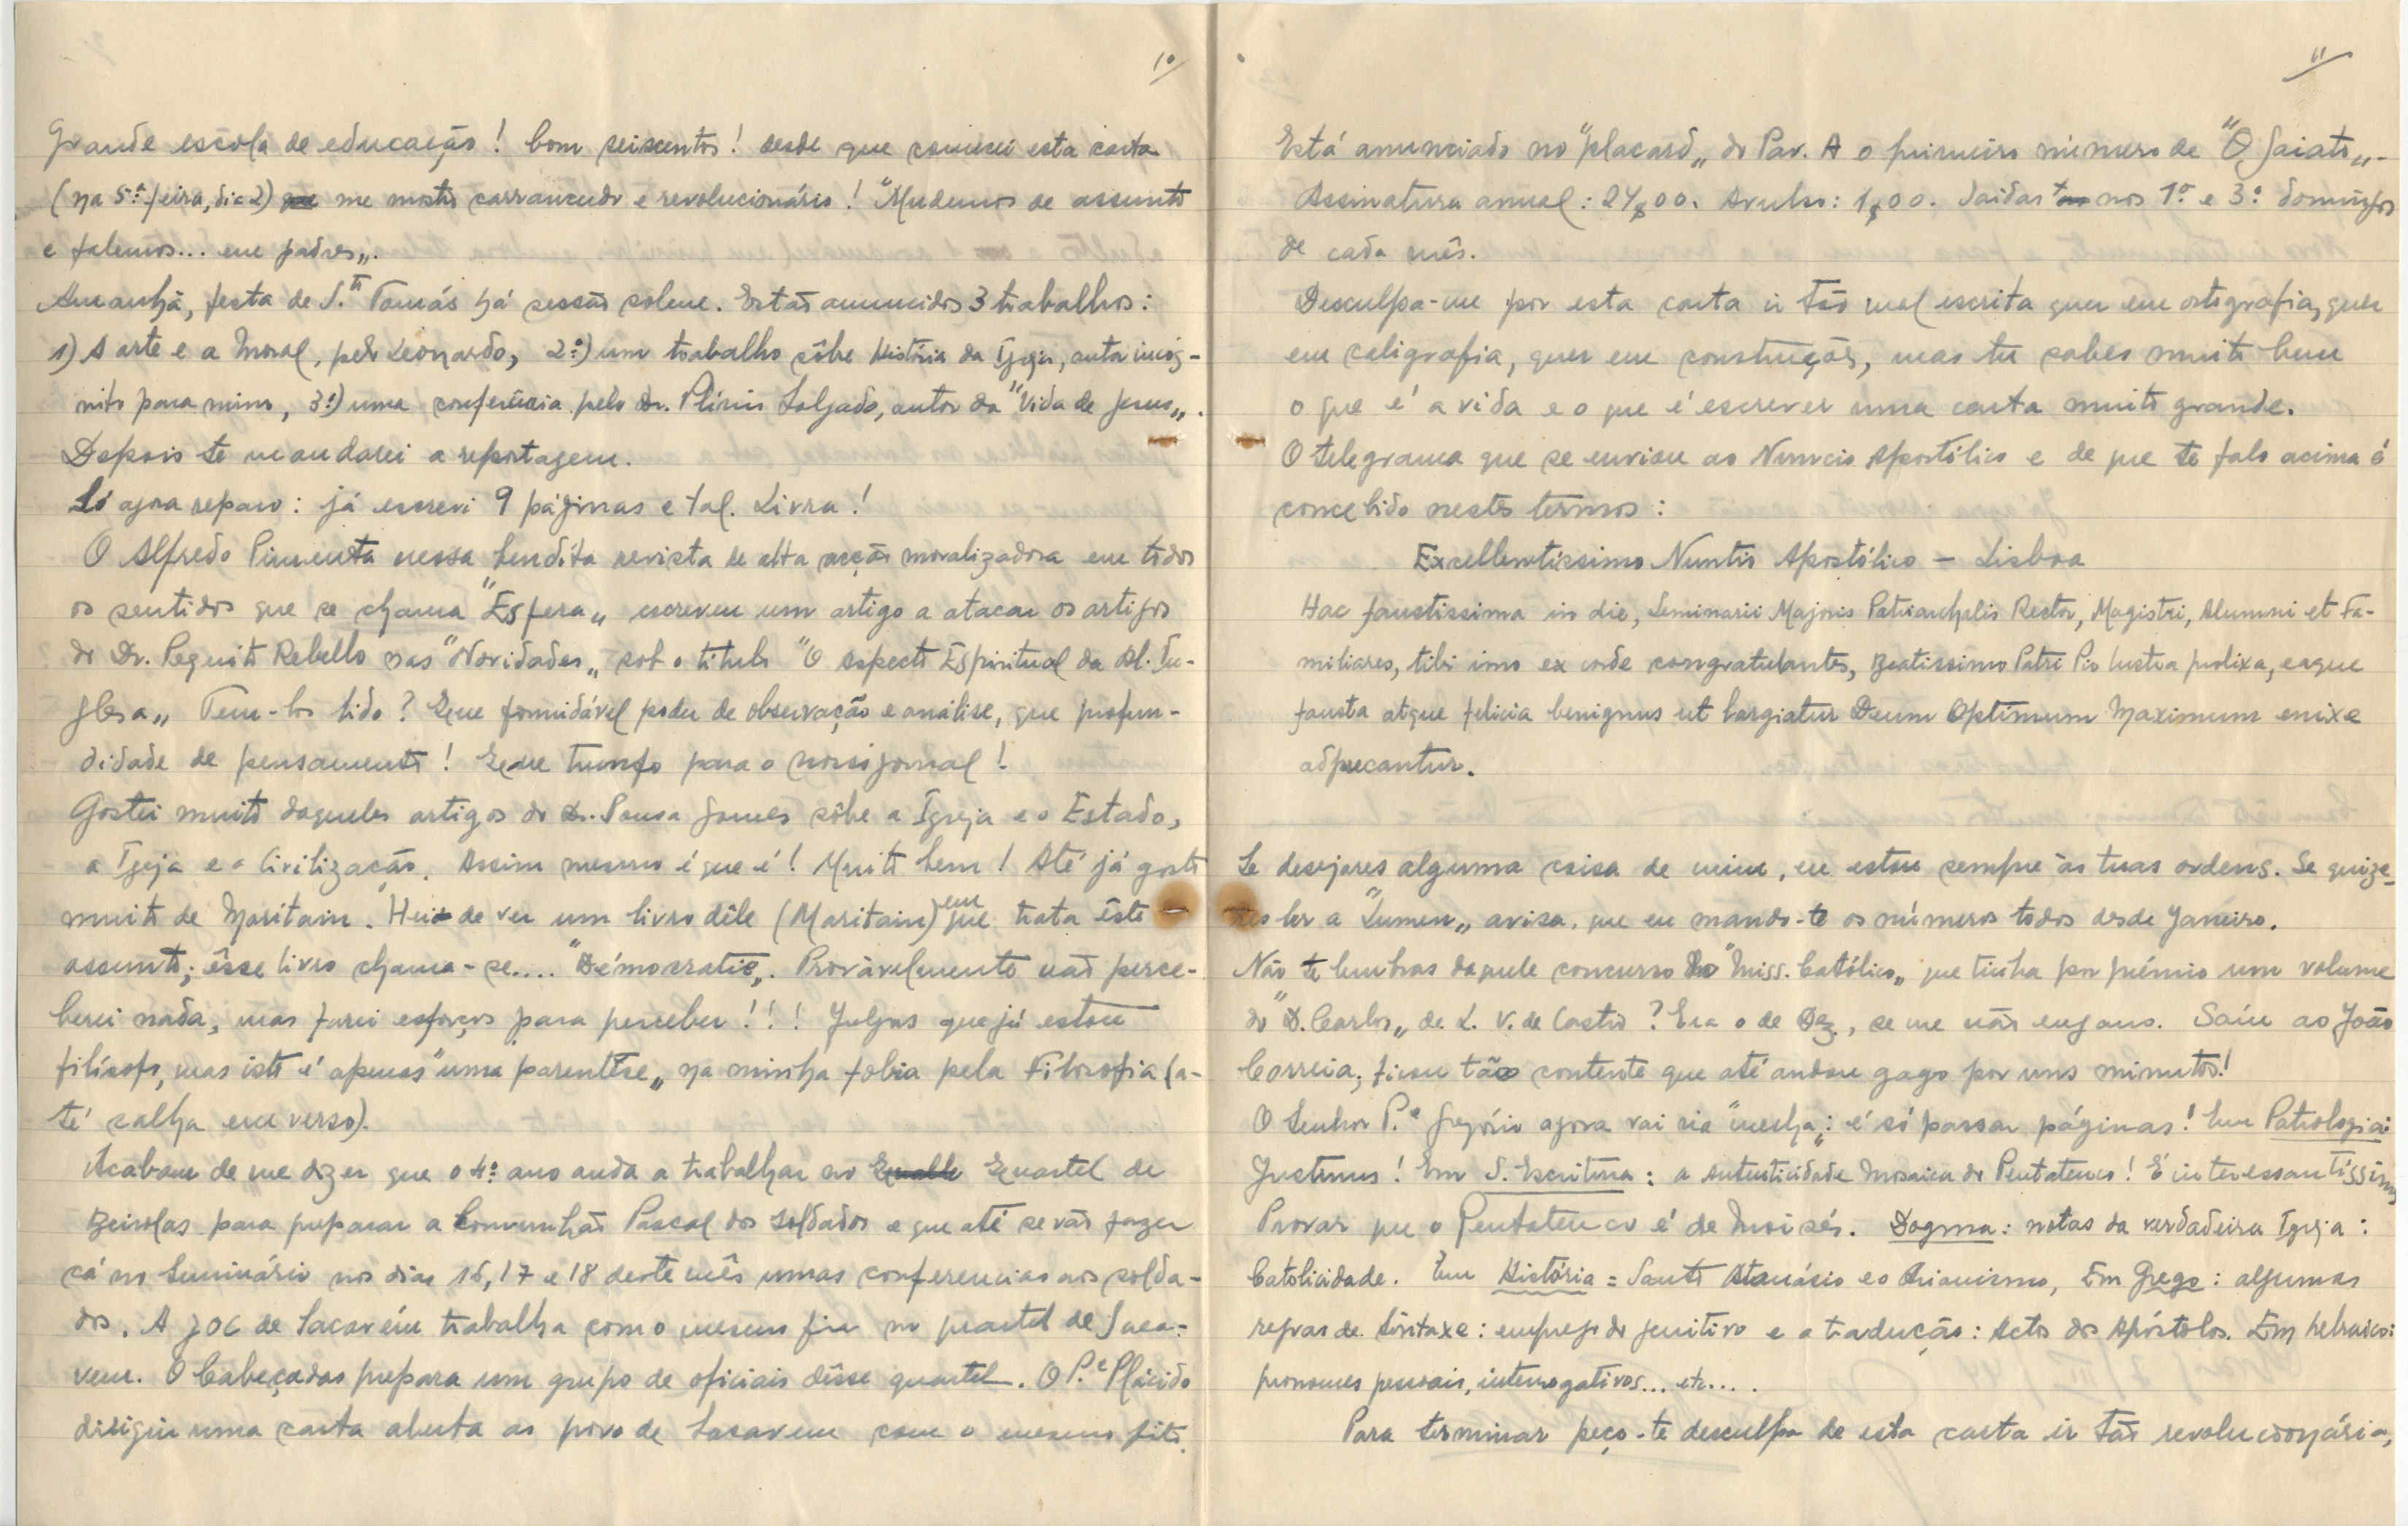 10
Grande escola de educação! Com seiscentos! desde que comecei esta carta
(na 5ª feira, dia 2) que me mostro carrancudo e revolucionário! "Mudemos de assunto
e falemos... em padres".
Amanhã, festa de S.to Tomás há sessão solene. Estão anunciados 3 trabalhos:
1) A arte e a Moral, pelo Leonardo, 2º) um trabalho sôbre História da Igreja, autor incóg-
nito para mim, 3º) uma conferência pelo Dr. Plínio Salgado, autor da "Vida de Jesus".
Depois te mandarei a reportagem.
Só agora reparo: já escrevi 9 páginas e tal. Livra!
O Alfredo Pimenta nessa bendita revista de alta acção moralizadora em todos
os sentidos que se chama "Esfera" escreveu um artigo a atacar os artigos
do Dr. Pequito Rebello nas "Novidades" sob o título "O aspecto Espiritual da Al. In-
glesa" Tem-los lido? Que formidável poder de observação e análise, que profun-
didade de pensamento! Que trunfo para o nosso jornal!
Gostei muito daqueles artigos do Dr. Sousa Gomes sôbre a Igreja e o Estado,
a Igreja e a Civilização. Assim mesmo é que é! Muito bem! Até já gosto
muito de Maritain. Hei de ver um livro dêle (Maritain) em que trata êste
assunto; êsse livro chama-se.... "Démocratie". Provàvelmente não perce-
berei nada, mas farei esforços para perceber!!! Julgas que já estou
filósofo, mas isto é apenas "uma parentêse" na minha fobia pela Filosofia (a-
té calha em verso).
Acabam de me dizer que o 4º ano anda a trabalhar no Quartel de
Beirolas para preparar a Comunhão Pascal dos soldados e que até se vão fazer
cá no Seminário nos dias 16, 17 e 18 dêste mês umas conferencias aos solda-
dos. A JOC de Sacavém trabalha com o mesmo fim no quartel de Saca-
vem. O Cabeçadas prepara um grupo de oficiais dêsse quartel. O P.e Plácido
dirigiu uma carta aberta ao povo de Sacavem com o mesmo fito.
11
Está anunciado no "placard" do Pav. A o primeiro número de "O Gaiato".
Assinatura anual: 24$00. Avulso: 1$00. Saídas nos 1º e 3º domingos
de cada mês.
Desculpa-me por esta carta ir tão mal escrita quer em ortografia, quer
em caligrafia, quer em construção, mas tu sabes muito bem
o que é a vida e o que é escrever uma carta muito grande.
O telegrama que se enviou ao Nuncio Apostólico e de que te falo acima é
concebido nestes termos:
Excellentissimo Nuntio Apostólico - Lisboa
Hac faustissima in die, Seminarii Majoris Patriarchalis Rector, Magistri, Alumni et Fa-
miliares, tibi imo ex corde congratulantes, Beatissimo Patri Pio lustra prolixa, eaque
fausta atque felicia benignus ut largiatur Deum Optimum Maximum enixe
adprecantur.
Se desejares alguma coisa de mim, eu estou sempre às tuas ordens. Se quize-
res ler a "Lumen" avisa, que eu mando-te os números todos desde Janeiro.
Não te lembras daquele concurso do "Miss. Católico" que tinha por prémio um volume
do "D. Carlos" de L. V. de Castro? Era o de Dez, se me não engano. Saíu ao João
Correia; ficou tão contente que até andou gago por uns minutos!
O Senhor P.e Gregório agora vai na "mecha": é só passar páginas! Em Patrologia:
Justinus! Em S. Escritura: a autenticidade Mosaica do Pentateuco! É interessantíssimo
Provar que o Pentateuco é de Moisés. Dogma: notas da verdadeira Igreja:
Catolicidade. Em História = Santo Atanásio e o Arianismo, Em Grego: algumas
regras de sintaxe: emprego do genitivo e a tradução: Actos dos Apóstolos. Em hebraico:
pronomes pessoais, interrogativos... etc....
Para terminar peço-te desculpa de esta carta ir tão revolucionária,